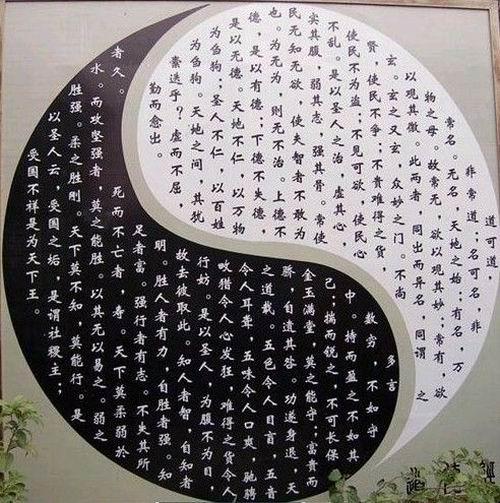 道可道，
非常道；名可名，非
常名。无名，天地之始；有名，万
物之母。故常无，欲以观其妙；常有，欲
以观其徼。此两者，同出而异名，同谓之
玄。玄之又玄，众妙之门。不尚
贤，使民不争；不贵难得之货，
使民不为盗；不见可欲，使民心
不乱。是以圣人之治，虚其心，
实其腹，弱其志，强其骨。常使
民无知无欲，使夫智者不敢为
也。为无为，则无不治。上德不
德，是以有德；下德不失德，
是以无德。天地不仁，以万物
为刍狗；圣人不仁，以百姓
为刍狗。天地之间，其犹
橐迭乎？虚而不屈
勤而愈出。
多言
数穷，不如守
中。持而盈之不如其
己；揣而锐之，不可长保
金玉满堂，莫之能守；富贵而
骄，自遗其咎。功遂身退，天
之道哉。五色令人目盲，五音
令人耳聋，五味令人口爽，驰骋
畋猎令人心发狂，难得之货令人
行妨。是以圣人，为腹不为目，
故去彼取此。知人者智，自知者
明。胜人者有力，自胜者强。知
足者富。强行者有志。不失其所
者久。死而不亡者，寿。天下莫柔弱於
水。而攻坚强者，莫之能胜。以其无以易之。弱之
胜强。柔之胜刚。天下莫不知，莫能行。是
以圣人云，受国之垢，是谓社稷主；
受国不祥是为天下王。